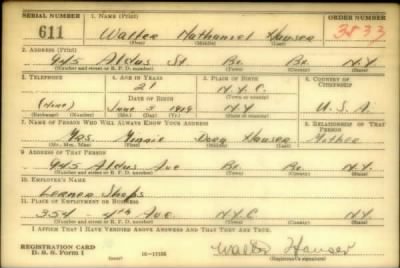 SERIAL NUMBER 1. NAME (Print) ORDER NUMBER
611 Walter Nathaniel Hauser 3833
(First) (Middle) (Last)
2. ADDRESS (Print)
945 Aldus St Bx. Bx. N.Y.
(Number and street or R. F. D. number) (Town) (County) (State)
3. TELEPHONE 4. AGE IN YEARS 5. PLACE OF BIRTH 6. COUNTRY OF CITIZENSHIP
21 N.Y.C.
DATE OF BIRTH
(none) June 5 1919 N.Y. U.S.A.
(Exchange) (Number) (Mo.) (Day) (Yr.) (State or country)
7. NAME OF PERSON WHO WILL ALWAYS KNOW YOUR ADDRESS 8. RELATIONSHIP OF THAT PERSON
Mrs. Dora Hauser Mother
(Mr., Mrs., Miss) (First) (Middle) (Last)
9. ADDRESS OF THAT PERSON
945 Aldus Ave Bx. Bx. N.Y.
(Number and street or R. F. D. number) (Town) (County) (State)
10. EMPLOYER'S NAME
Lerner Shops
11. PLACE OF EMPLOYMENT OR BUSINESS
354 - 4th Ave N.Y.C. N.Y.
(Number and street or R. F. D. number) (Town) (County) (State)
I AFFIRM THAT I HAVE VERIFIED ABOVE ANSWERS AND THAT THEY ARE TRUE.
REGISTRATION CARD
D. S. S. Form 1 16-17105 Walter Hauser
(Registrant's signature)